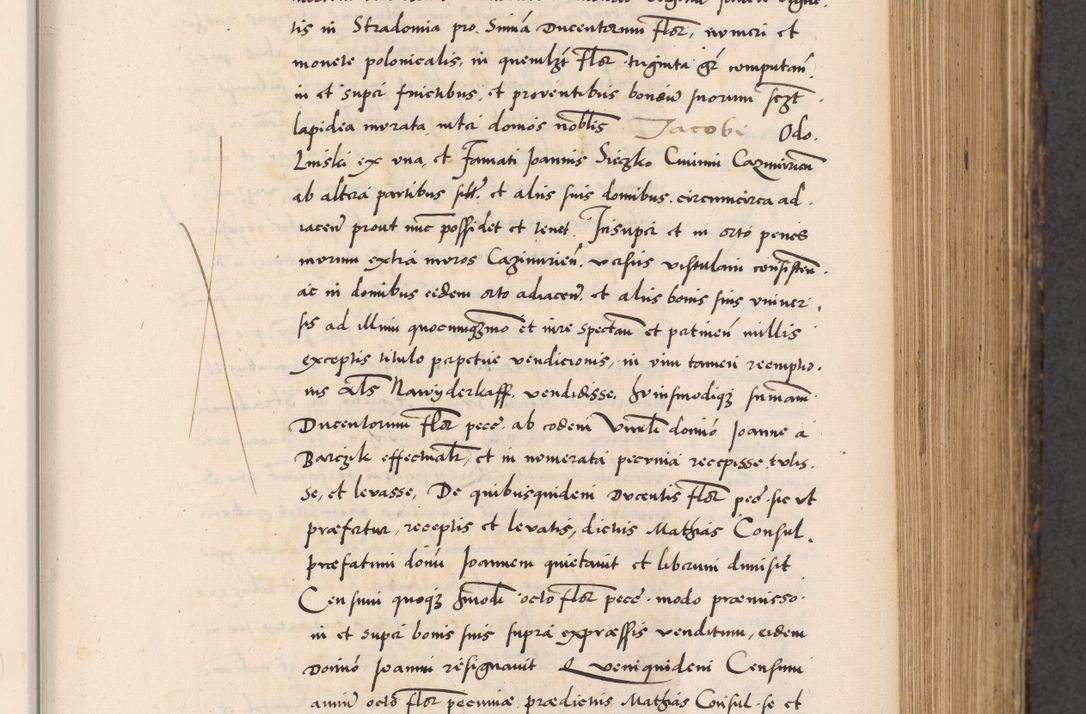 tis in Stradomia pro Sum̃a Ducentorum Flor̃, numeri et
monete polonicalis, in quemlz̃t Flor̃ triginta gr̃ computan̄.
in et supci fructibus, et proventibus bonoru̅ suorum sczt̃
lapidea murata, nrci domos nob̃lis Jacobi Odo.
Liński ex vna, et Famati Joannis Siczko Ciuimi Cazmirien̄
ab altera partibus sitr̃. et alijs suis domibus. circumcirca ad.
iacen̄ prout nuc̃ possidet et tenet. Insupci et in orto penes
murum extra muros Cazimirien̄. versus vistulam consisten̄.
ac in domibus eidem orto adiacen̄. et alijs bonis suis vniuer.
sis ad illum quocumqz̃mo et iure spectan̄ et pertinen̄ nullis
exceptis titulo perpetue vendicionis, in vim tamen reemptio.
nis al̃s Nawyderkaff. vendidisse, huiusmodiqz sum̃am
Ducentorum Flor̃ pecc̃ ab eodem Vn̄r̃li domino Joanne a
Barczik effectualr̃, et in numerata pecunia recepisse, tulis.
se, et levasse, De quibusquidem Ducentis Flor̃ pec̃ sic vt
præfertur, receptis et levatis, dictus Mathias Consul.
præfatum donu̅ Joannem quietauit et liberum dimisit
Censum quoqz hmodi octo Flor̃ pecc̃. modo præmisso.
in et supci bonis suis supra expræssis venditum, eidem
Domino Joanni resignauit Quemquidem Censum
annuu̅ octo Flor̃ pecuniæ prædictus Mathias Consul se et